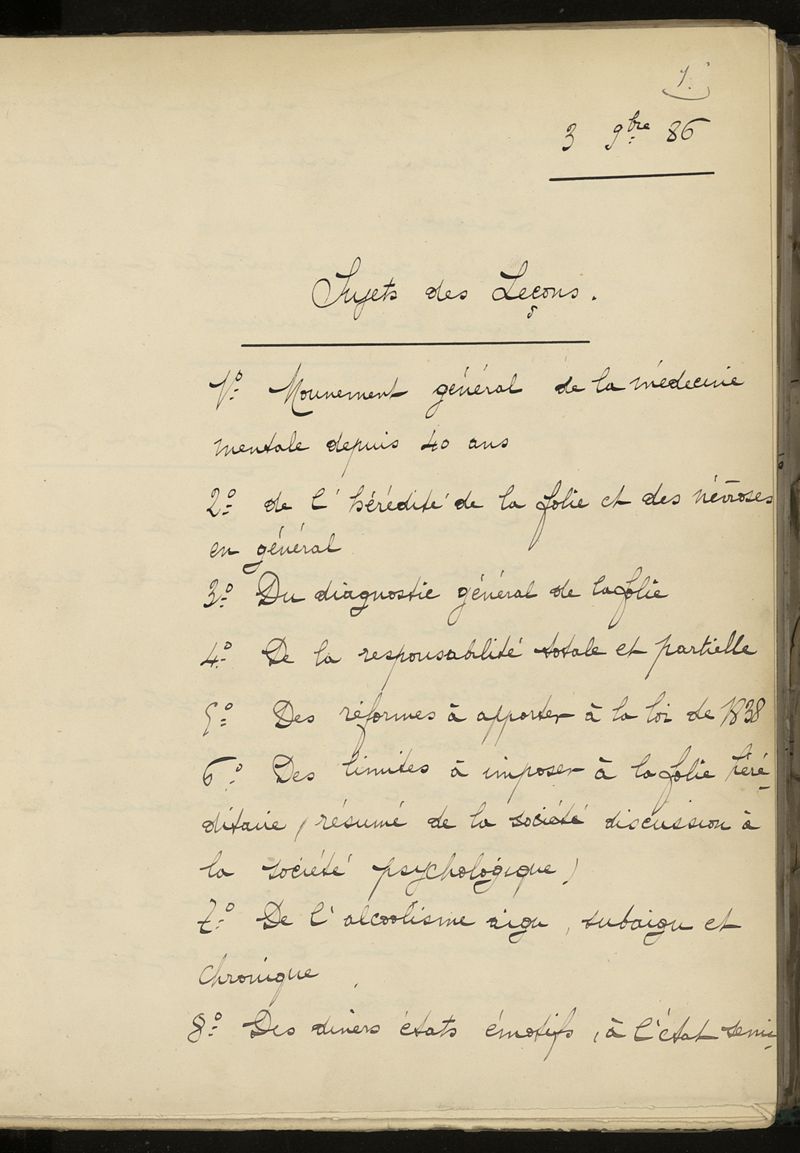 1.
3 9bre 86
Sujets des Leçons.
1º Mouvement général de la médecine
mentale depuis 40 ans
2º de l'hérédité de la folie et des névroses
en général
3º Du diagnostic général de la folie
4º De la responsabilité totale et partielle
5º Des réformes à apporter à la loi de 1838
6º Des limites à imposer à la folie héré-
ditaire (résumé de la société discussion à
la société psychologique)
7º De l'alcoolisme aigu, subaigu et
chronique
8º Des divers états émotifs, à l'état semi-